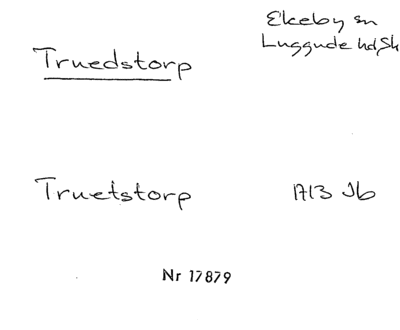 Ekeby sn
Luggude hd, Sk
Truedstorp
Truetstorp
1713 Jb
Nr 17879